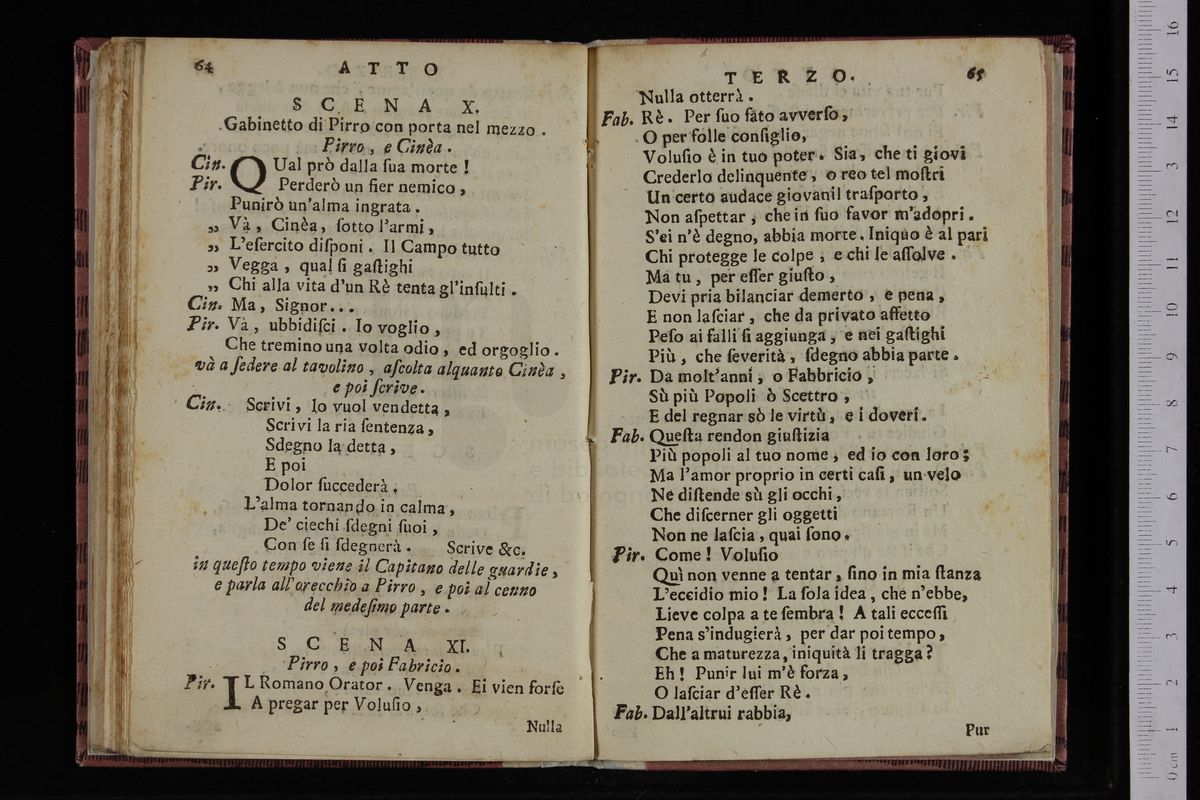 64
ATTO
SCENA X.
Gabinetto di Pirro con porta nel mezzo.
Pirro, e Cinèa.
Cin. QUal prò dalla ſua morte!
Pir. Perderò un fier nemico,
Punirò un'alma ingrata.
„ Và, Cinèa, ſotto l'armi,
„ L'eſercito diſponi. Il Campo tutto
„ Vegga, qual ſi gaſtighi
„ Chi alla vita d'un Rè tenta gl'inſulti.
Cin. Ma, Signor...
Pir. Và, ubbidiſci. Io voglio,
Che tremino una volta odio, ed orgoglio.
và a ſedere al tavolino, aſcolta alquanto Cinèa,
e poi ſcrive.
Cin. Scrivi, lo vuol vendetta,
Scrivi la ria ſentenza,
Sdegno la detta,
E poi
Dolor ſuccederà.
L'alma tornando in calma,
De' ciechi ſdegni ſuoi,
Con ſe ſi ſdegnerà. Scrive &c.
in queſto tempo viene il Capitano delle guardie,
e parla all'orecchio a Pirro, e poi al cenno
del medeſimo parte.
SCENA XI.
Pirro, e poi Fabricio.
Pir. IL Romano Orator. Venga. Ei vien forſe
A pregar per Voluſio,
Nulla
TERZO.
65
Nulla otterrà.
Fab. Rè. Per ſuo fato avverſo,
O per folle conſiglio,
Voluſio è in tuo poter. Sia, che ti giovi
Crederlo delinquente, o reo tel moſtri
Un certo audace giovanil traſporto,
Non aſpettar, che in ſuo favor m'adopri.
S'ei n'è degno, abbia morte. Iniquo è al pari
Chi protegge le colpe, e chi le aſſolve.
Ma tu, per eſſer giuſto,
Devi pria bilanciar demerto, e pena,
E non laſciar, che da privato affetto
Peſo ai falli ſi aggiunga, e nei gaſtighi
Più, che ſeverità, ſdegno abbia parte.
Pir. Da molt'anni, o Fabbricio,
Sù più Popoli ò Scettro,
E del regnar sò le virtù, e i doveri.
Fab. Queſta rendon giuſtizia
Più popoli al tuo nome, ed io con loro;
Ma l'amor proprio in certi caſi, un velo
Ne diſtende sù gli occhi,
Che diſcerner gli oggetti
Non ne laſcia, quai ſono.
Pir. Come! Voluſio
Quì non venne a tentar, ſino in mia ſtanza
L'eccidio mio! La ſola idea, che n'ebbe,
Lieve colpa a te ſembra! A tali ecceſſi
Pena s'indugierà, per dar poi tempo,
Che a maturezza, iniquità li tragga?
Eh! Punir lui m'è forza,
O laſciar d'eſſer Rè.
Fab. Dall'altrui rabbia,
Pur